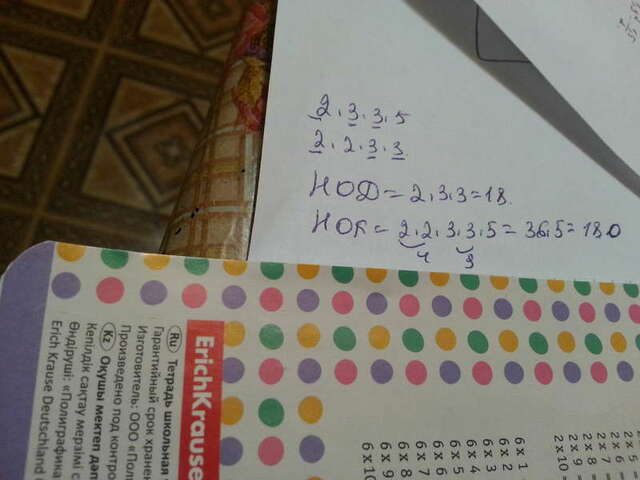 2.3.3.5
2.2.3.3.
НОД = 2.3.3 = 18.
НОК = 2.2.3.3.5 = 36.5 = 180
4
9
ErichKrause
Ru Тетрадь школьная
Гарантийный срок хранен
Изготовитель: ООО «Пол
Произведено под контро
Kz Оқушы мектеп дәп
Кепілдік сақтау мерзімі с
Өндіруші: «Полиграфика
Erich Krause Deutschland
6 x 1
6 x 2
6 x 3
6 x 4
6 x 5
6 x 6
6 x 7
6 x 8
6 x 9
6 x 10
2 x 5
2 x 6
2 x 7
2 x 8
2 x 9
2 x 10 =